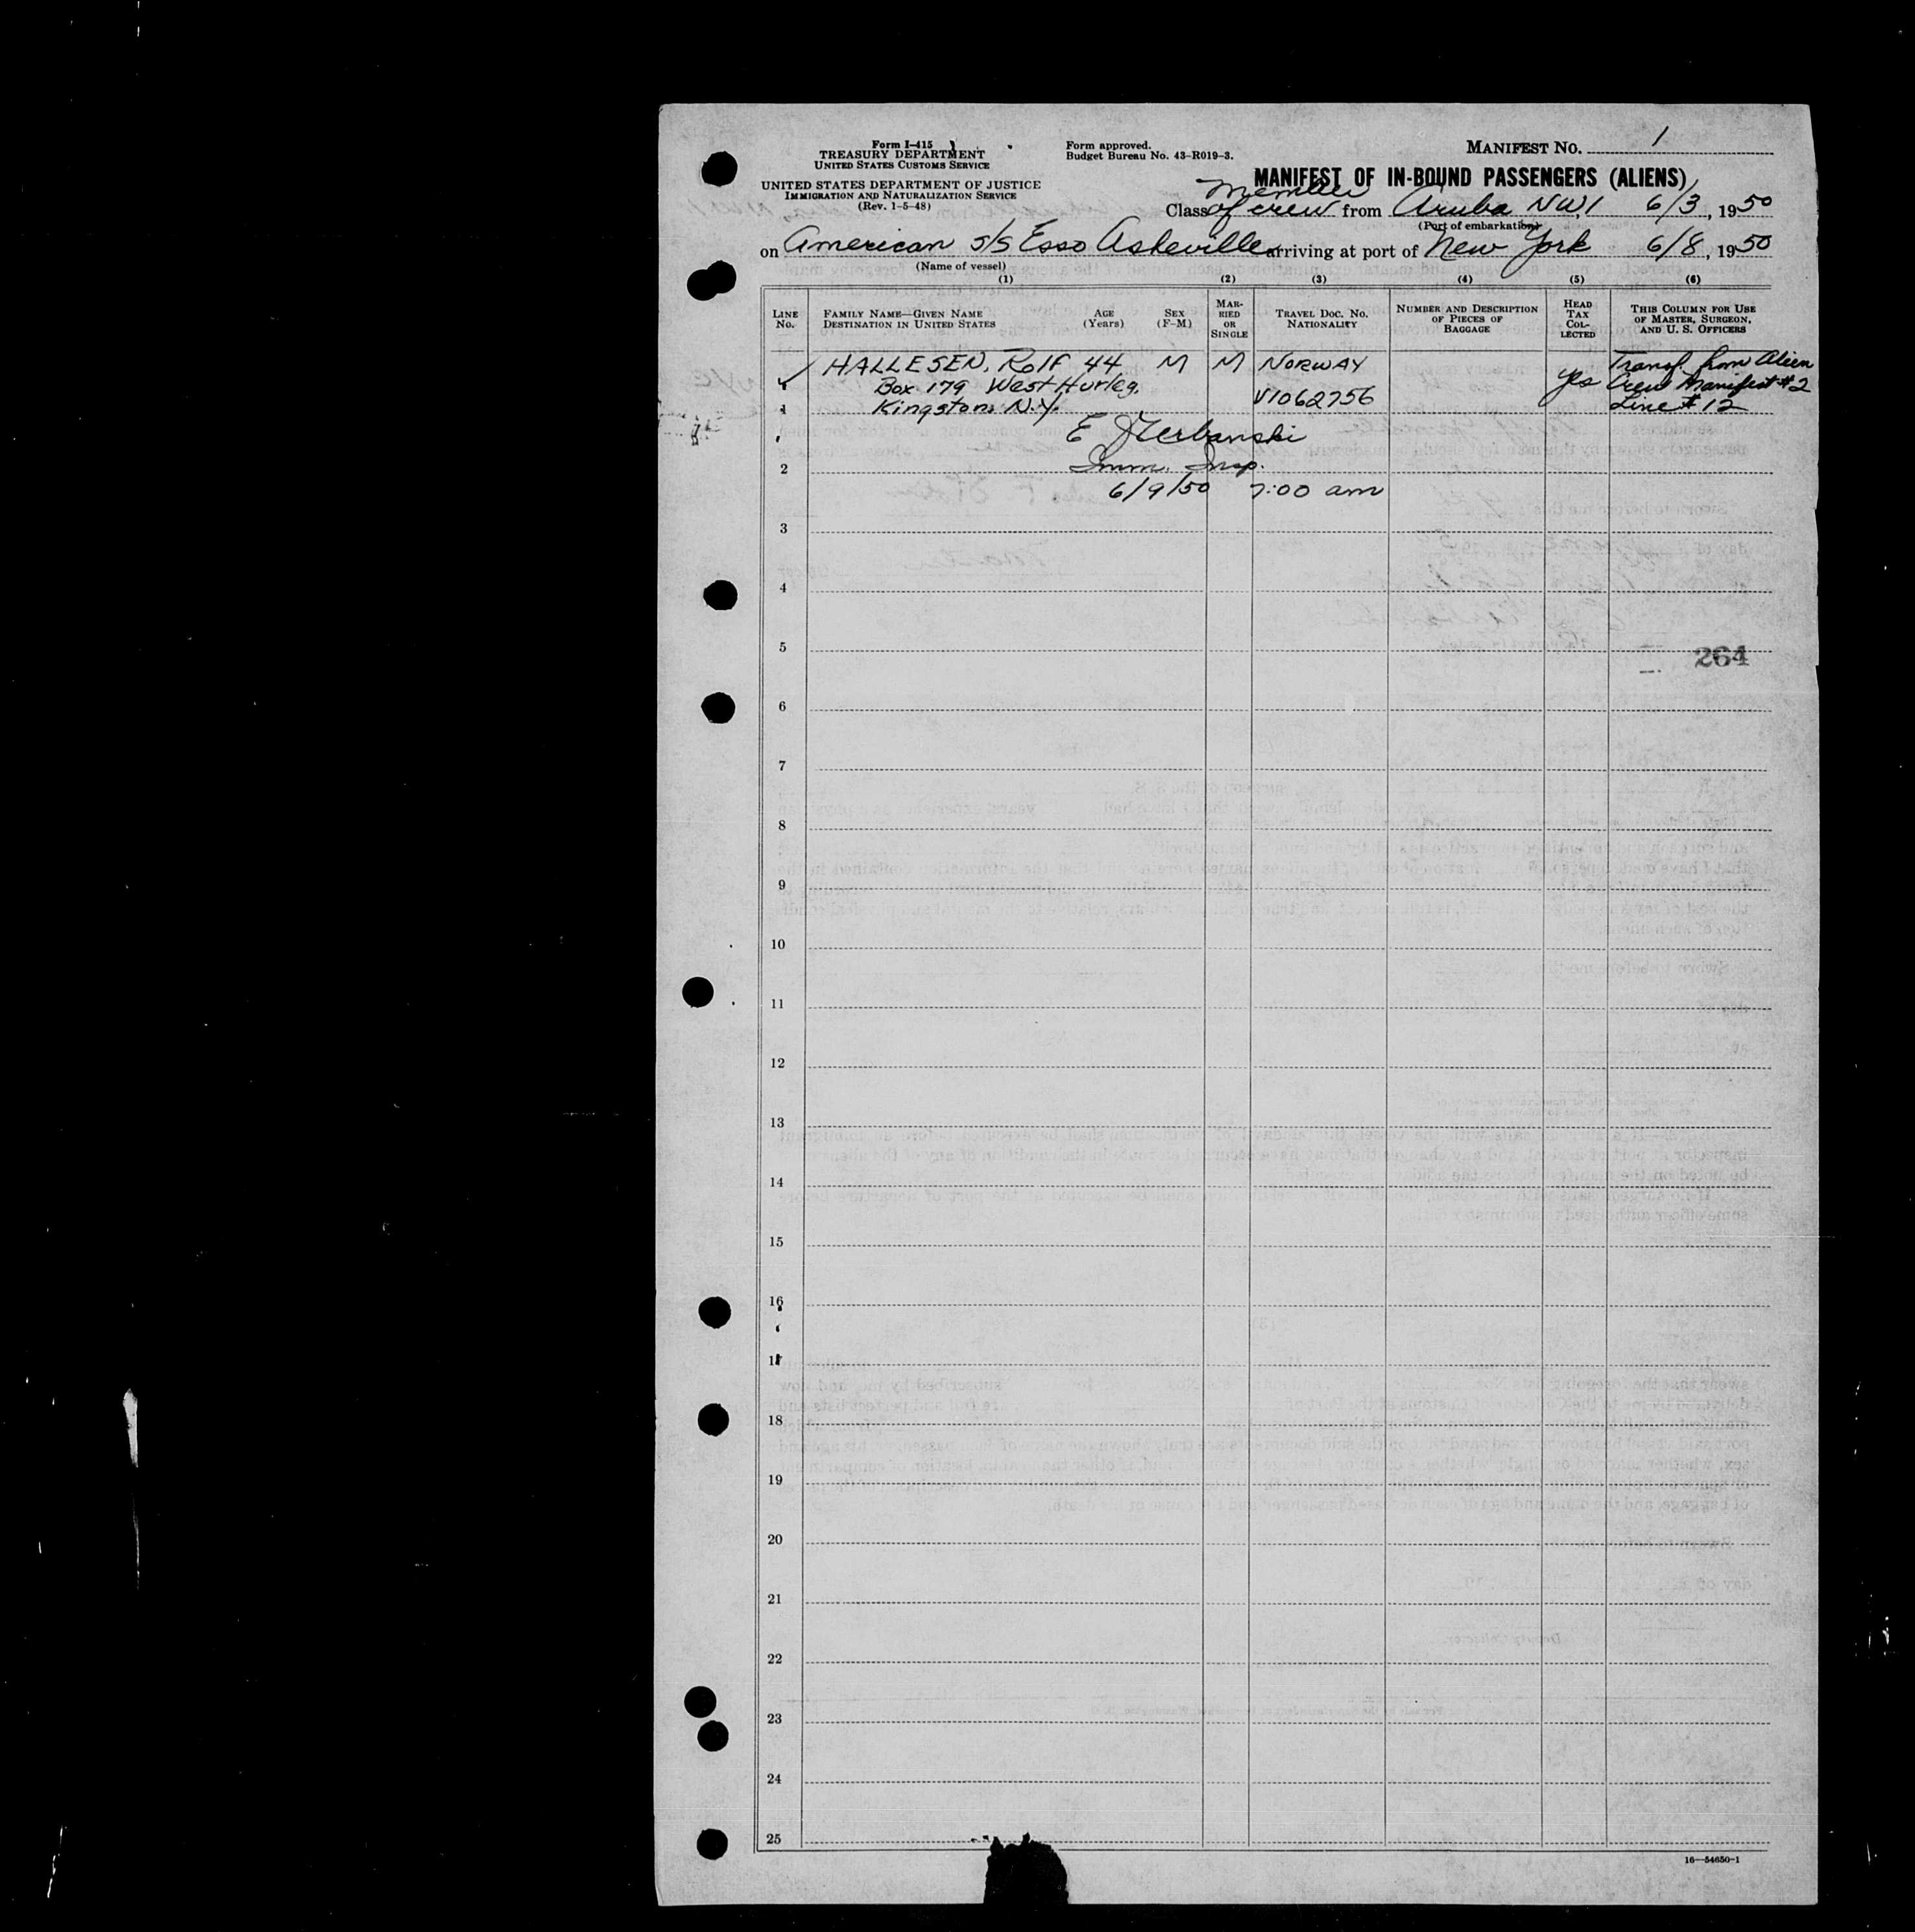 Form I-415
TREASURY DEPARTMENT
UNITED STATES CUSTOMS SERVICE
UNITED STATES DEPARTMENT OF JUSTICE
IMMIGRATION AND NATURALIZATION SERVICE
(Rev. 1-5-48)
Form approved.
Budget Bureau No. 43-R019-3.
MANIFEST NO. 1
MANIFEST OF IN-BOUND PASSENGERS (ALIENS)
Member
Class of crew from Aruba NWI 6/3, 1950
(Port of embarkation)
on American S/S Esso Asheville arriving at port of New York 6/8, 1950
(Name of vessel)
(1) (2) (3) (4) (5) (6)
LINE NO.
FAMILY NAME—GIVEN NAME
DESTINATION IN UNITED STATES
AGE (Years)
SEX (F-M)
MARRIED OR SINGLE
TRAVEL DOC. NO.
NATIONALITY
NUMBER AND DESCRIPTION OF PIECES OF BAGGAGE
HEAD TAX COLLECTED
THIS COLUMN FOR USE OF MASTER, SURGEON, AND U. S. OFFICERS
HALLESEN, Rolf 44 M M NORWAY Transf. from Alien
Box 179 West Hurley, V1062756 yes Crew Manifest #2
1 Kingston, N.Y. Line #12
E
2 Imm. Insp.
6/9/50 7:00 am
3
4
5
264
6
7
8
9
10
11
12
13
14
15
16
17
18
19
20
21
22
23
24
25
16—54650-1